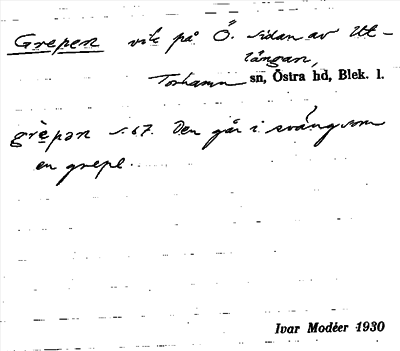 Grepen vik på Ö. sidan av Ut-
längan,
Torhamn sn, Östra hd, Blek. l.
grèpən s. 67. Den går i sväng som
en grepe.
Ivar Modéer 1930